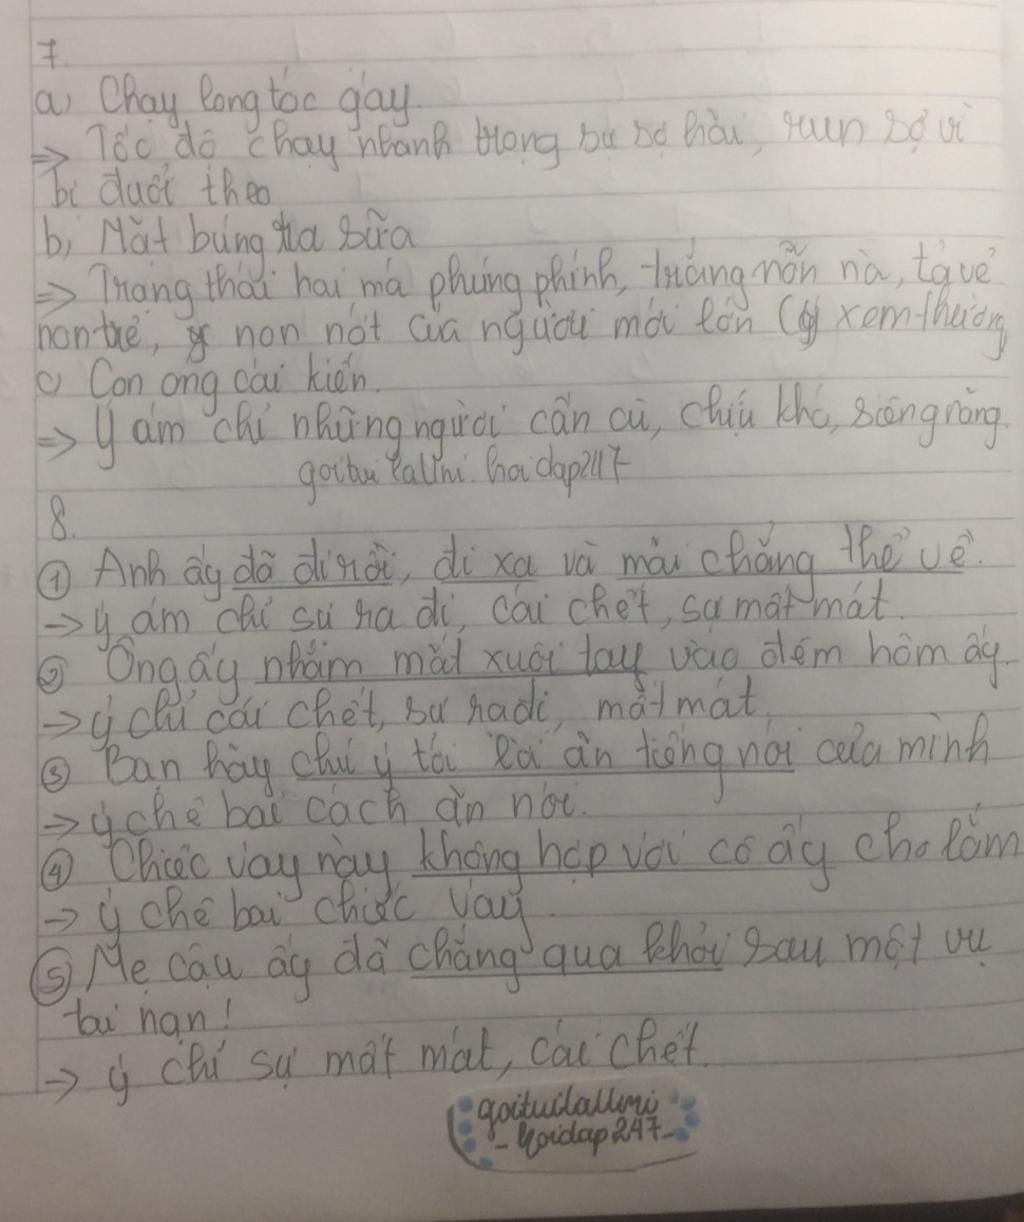 7.
a) Chạy long tóc gáy.
=> Tốc độ chạy nhanh trong sự sợ hãi, run sợ vì
bị đuổi theo
b) Mặt búng ra sữa
=> Trạng thái hai má phúng phính, trắng nõn nà, tả vẻ
non trẻ, non nớt của người mới lớn (ý xem thường
c) Con ong cái kiến.
=> Ý ám chỉ những người cần cù, chịu khó, siêng năng.
goituilallmi hoidap247
8.
① Anh ấy đã đi rồi, đi xa và mãi chẳng thể về.
-> ý ám chỉ sự ra đi, cái chết, sự mất mát.
② Ông ấy nhắm mắt xuôi tay vào đêm hôm ấy.
-> ý chỉ cái chết, sự ra đi, mất mát.
③ Bạn hãy chú ý tới lời ăn tiếng nói của mình
-> ý chê bai cách ăn nói.
④ Chiếc váy này không hợp với cô ấy cho lắm
-> ý chê bai chiếc váy.
⑤ Mẹ cậu ấy đã chẳng qua khỏi sau một vụ
tai nạn!
-> ý chỉ sự mất mát, cái chết.
goituilallmi
- hoidap247 -